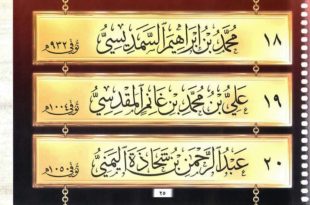 ١٨ مُحَمَّدُ بْنُ إِبْرَاهِيمَ السَّمَدِيسِيُّ توفي ٩٣٢هـ
١٩ عَلِيُّ بْنُ مُحَمَّدِ بْنِ غَانِمٍ الْمَقْدِسِيُّ توفي ١٠٠٤هـ
٢٠ عَبْدُ الرَّحْمَنِ بْنُ شَحَاذَةَ الْيَمَنِيُّ توفي ١٠٥٠هـ
٢٥